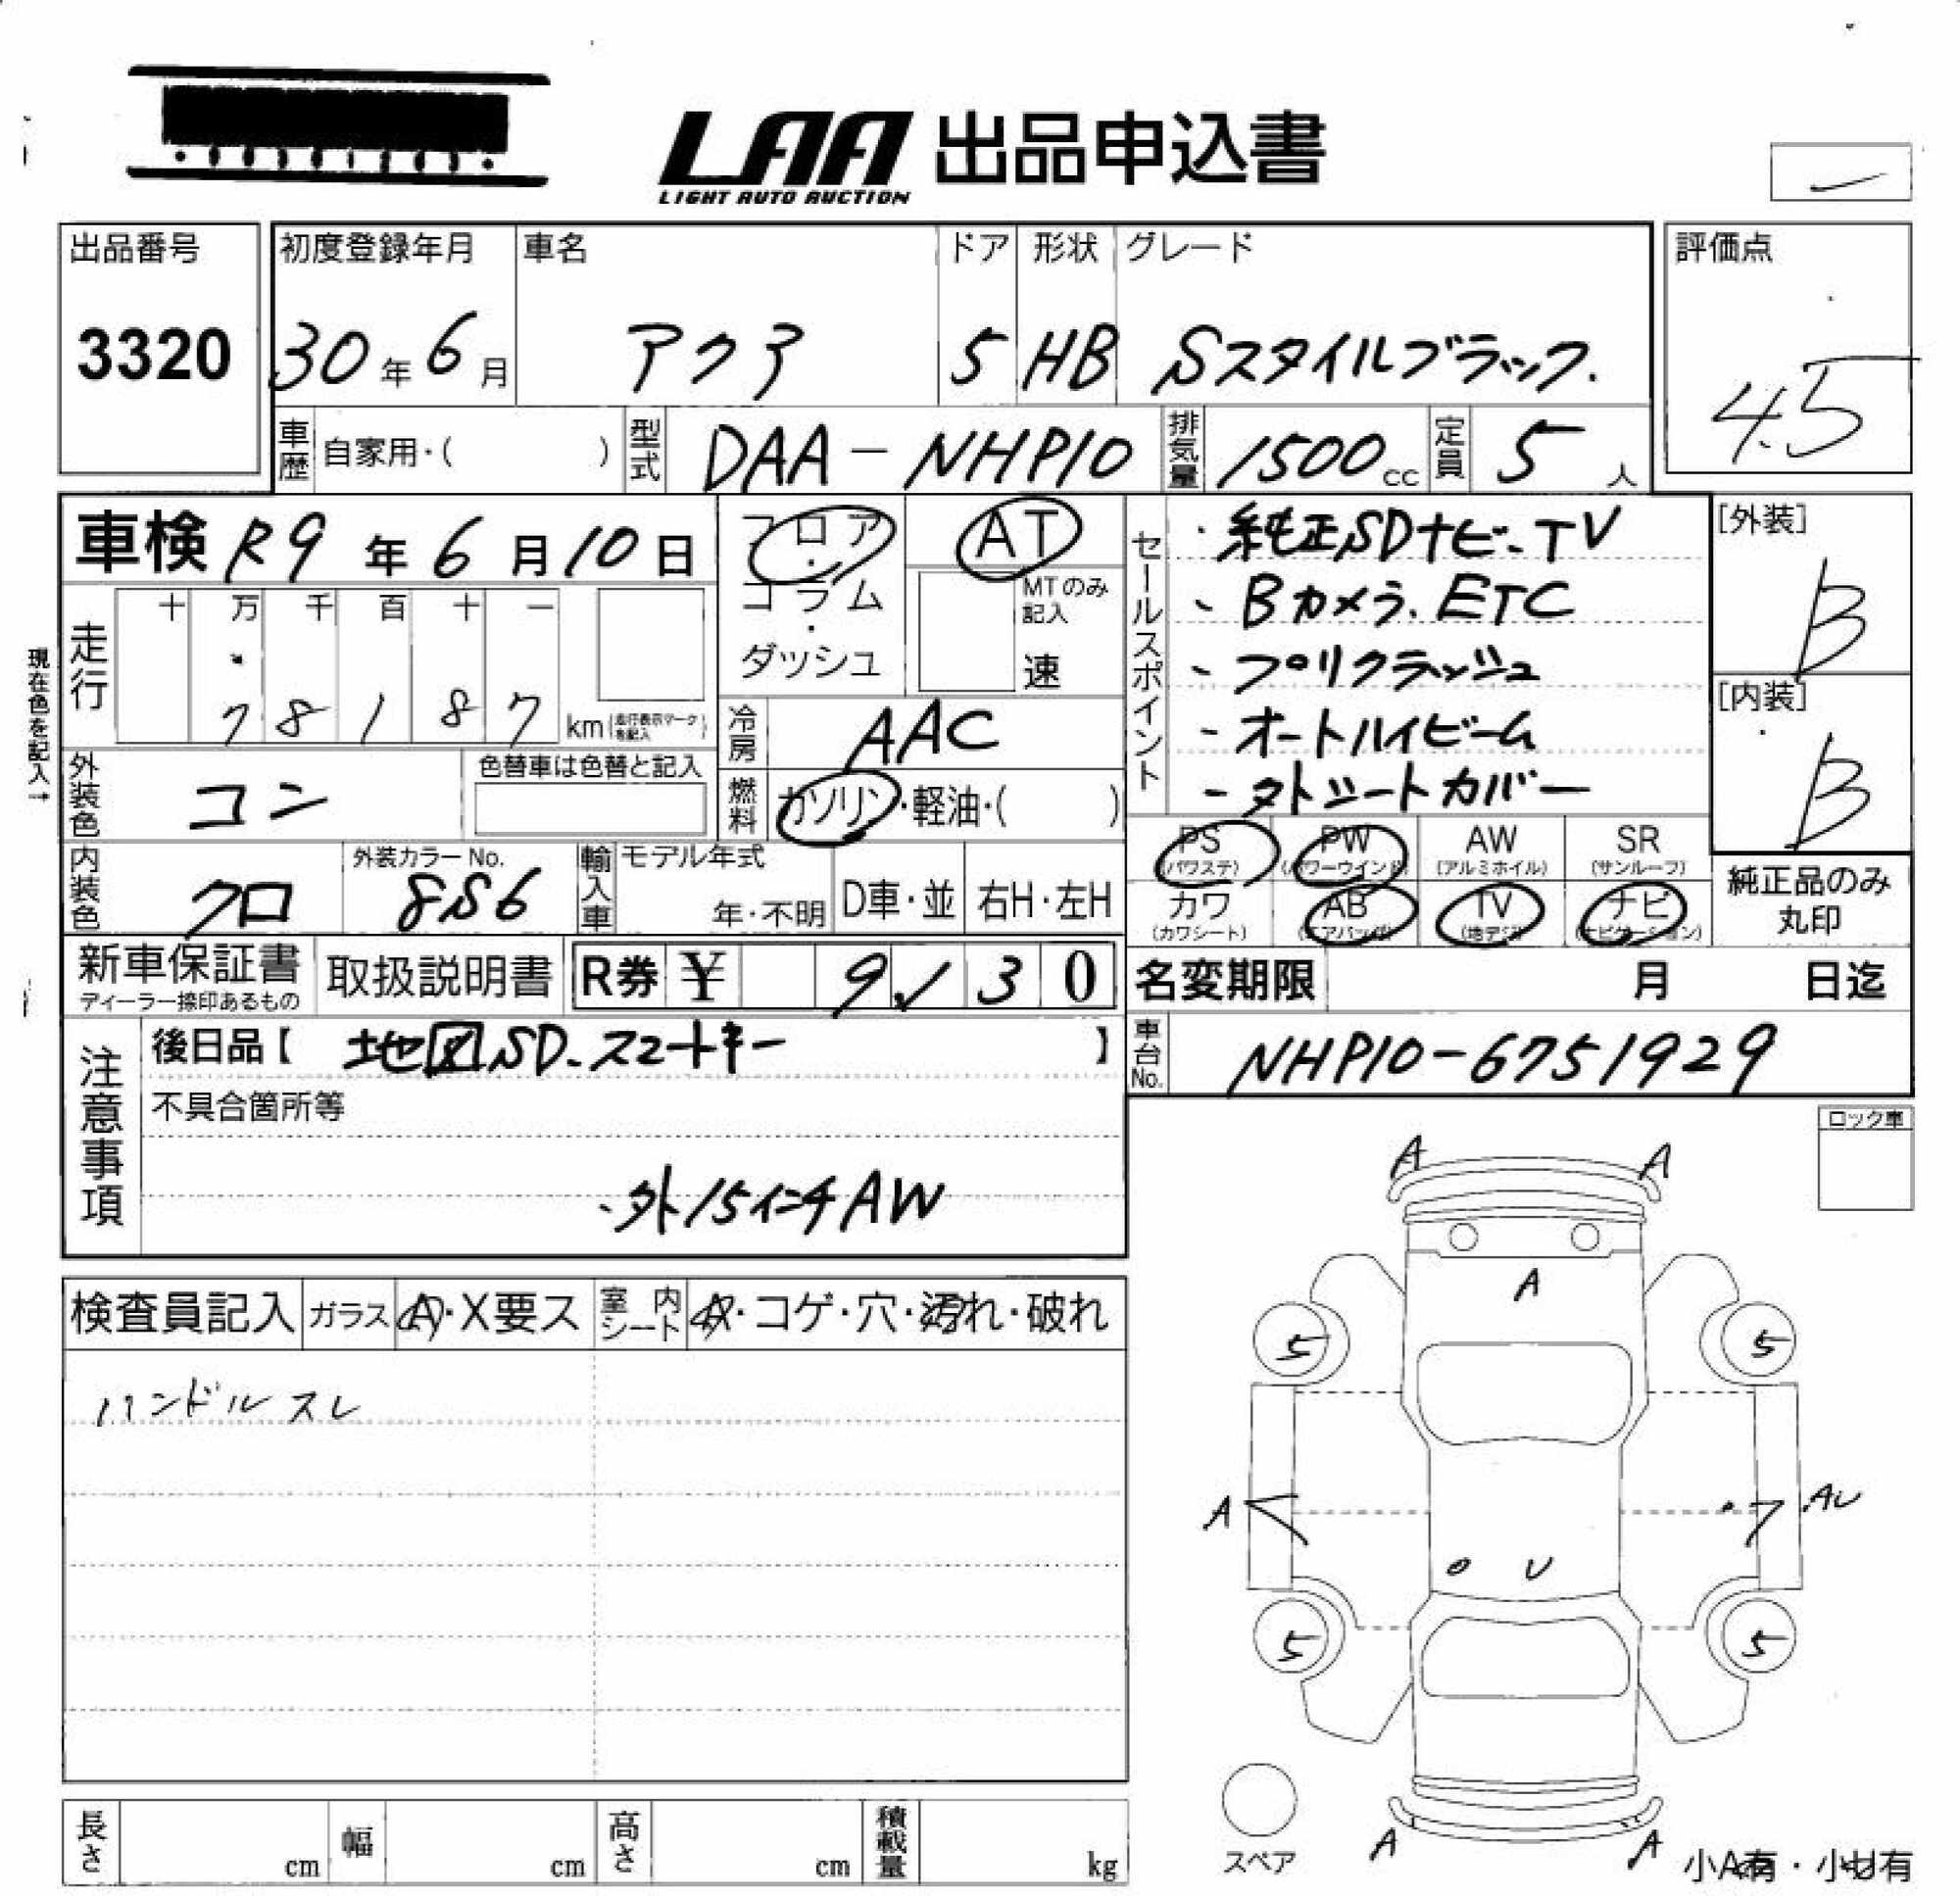 LAA 出品申込書
LIGHT AUTO AUCTION
出品番号 初度登録年月 車名 ドア 形状 グレード 評価点
3320 30年6月 アクア 5 HB Sスタイルブラック. 4.5
車歴 自家用・( ) 型式 DAA-NHP10 排気量 1500cc 定員 5人
車検 R9年6月10日 フロア・コラム・ダッシュ AT MTのみ記入 速
走行 十 万 千 百 十 一
7 8 1 8 7 km(走行表示マークを記入)
現在色を記入→
冷房 AAC
外装色 コン 色替車は色替と記入 燃料 ガソリン・軽油・( )
内装色 クロ 外装カラーNo. 8S6 輸入車 モデル年式 年・不明 D車・並 右H・左H
セールスポイント
・純正SDナビ、TV
、Bカメラ、ETC
、プリクラッシュ
、オートハイビーム
、タトシートカバー
[外装]
B
[内装]
B
PS (パワステ) PW (パワーウインド) AW (アルミホイル) SR (サンルーフ)
カワ (カワシート) AB (エアバッグ) TV (地デジ) ナビ (ナビゲーション)
純正品のみ丸印
新車保証書 ディーラー捺印あるもの 取扱説明書 R券 ¥ 9 30
名変期限 月 日迄
車台No. NHP10-6751929
注意事項
後日品【 地図SD、スマートキー 】
不具合箇所等
、外15インチAW
ロック車
検査員記入 ガラス A・X要ス 室内シート ・コゲ・穴・汚れ・破れ
ハンドル スレ
A A
A
5 5
A AU
U
5 5
A A
スペア
小A有・小U有
長さ cm 幅 cm 高さ cm 積載量 kg